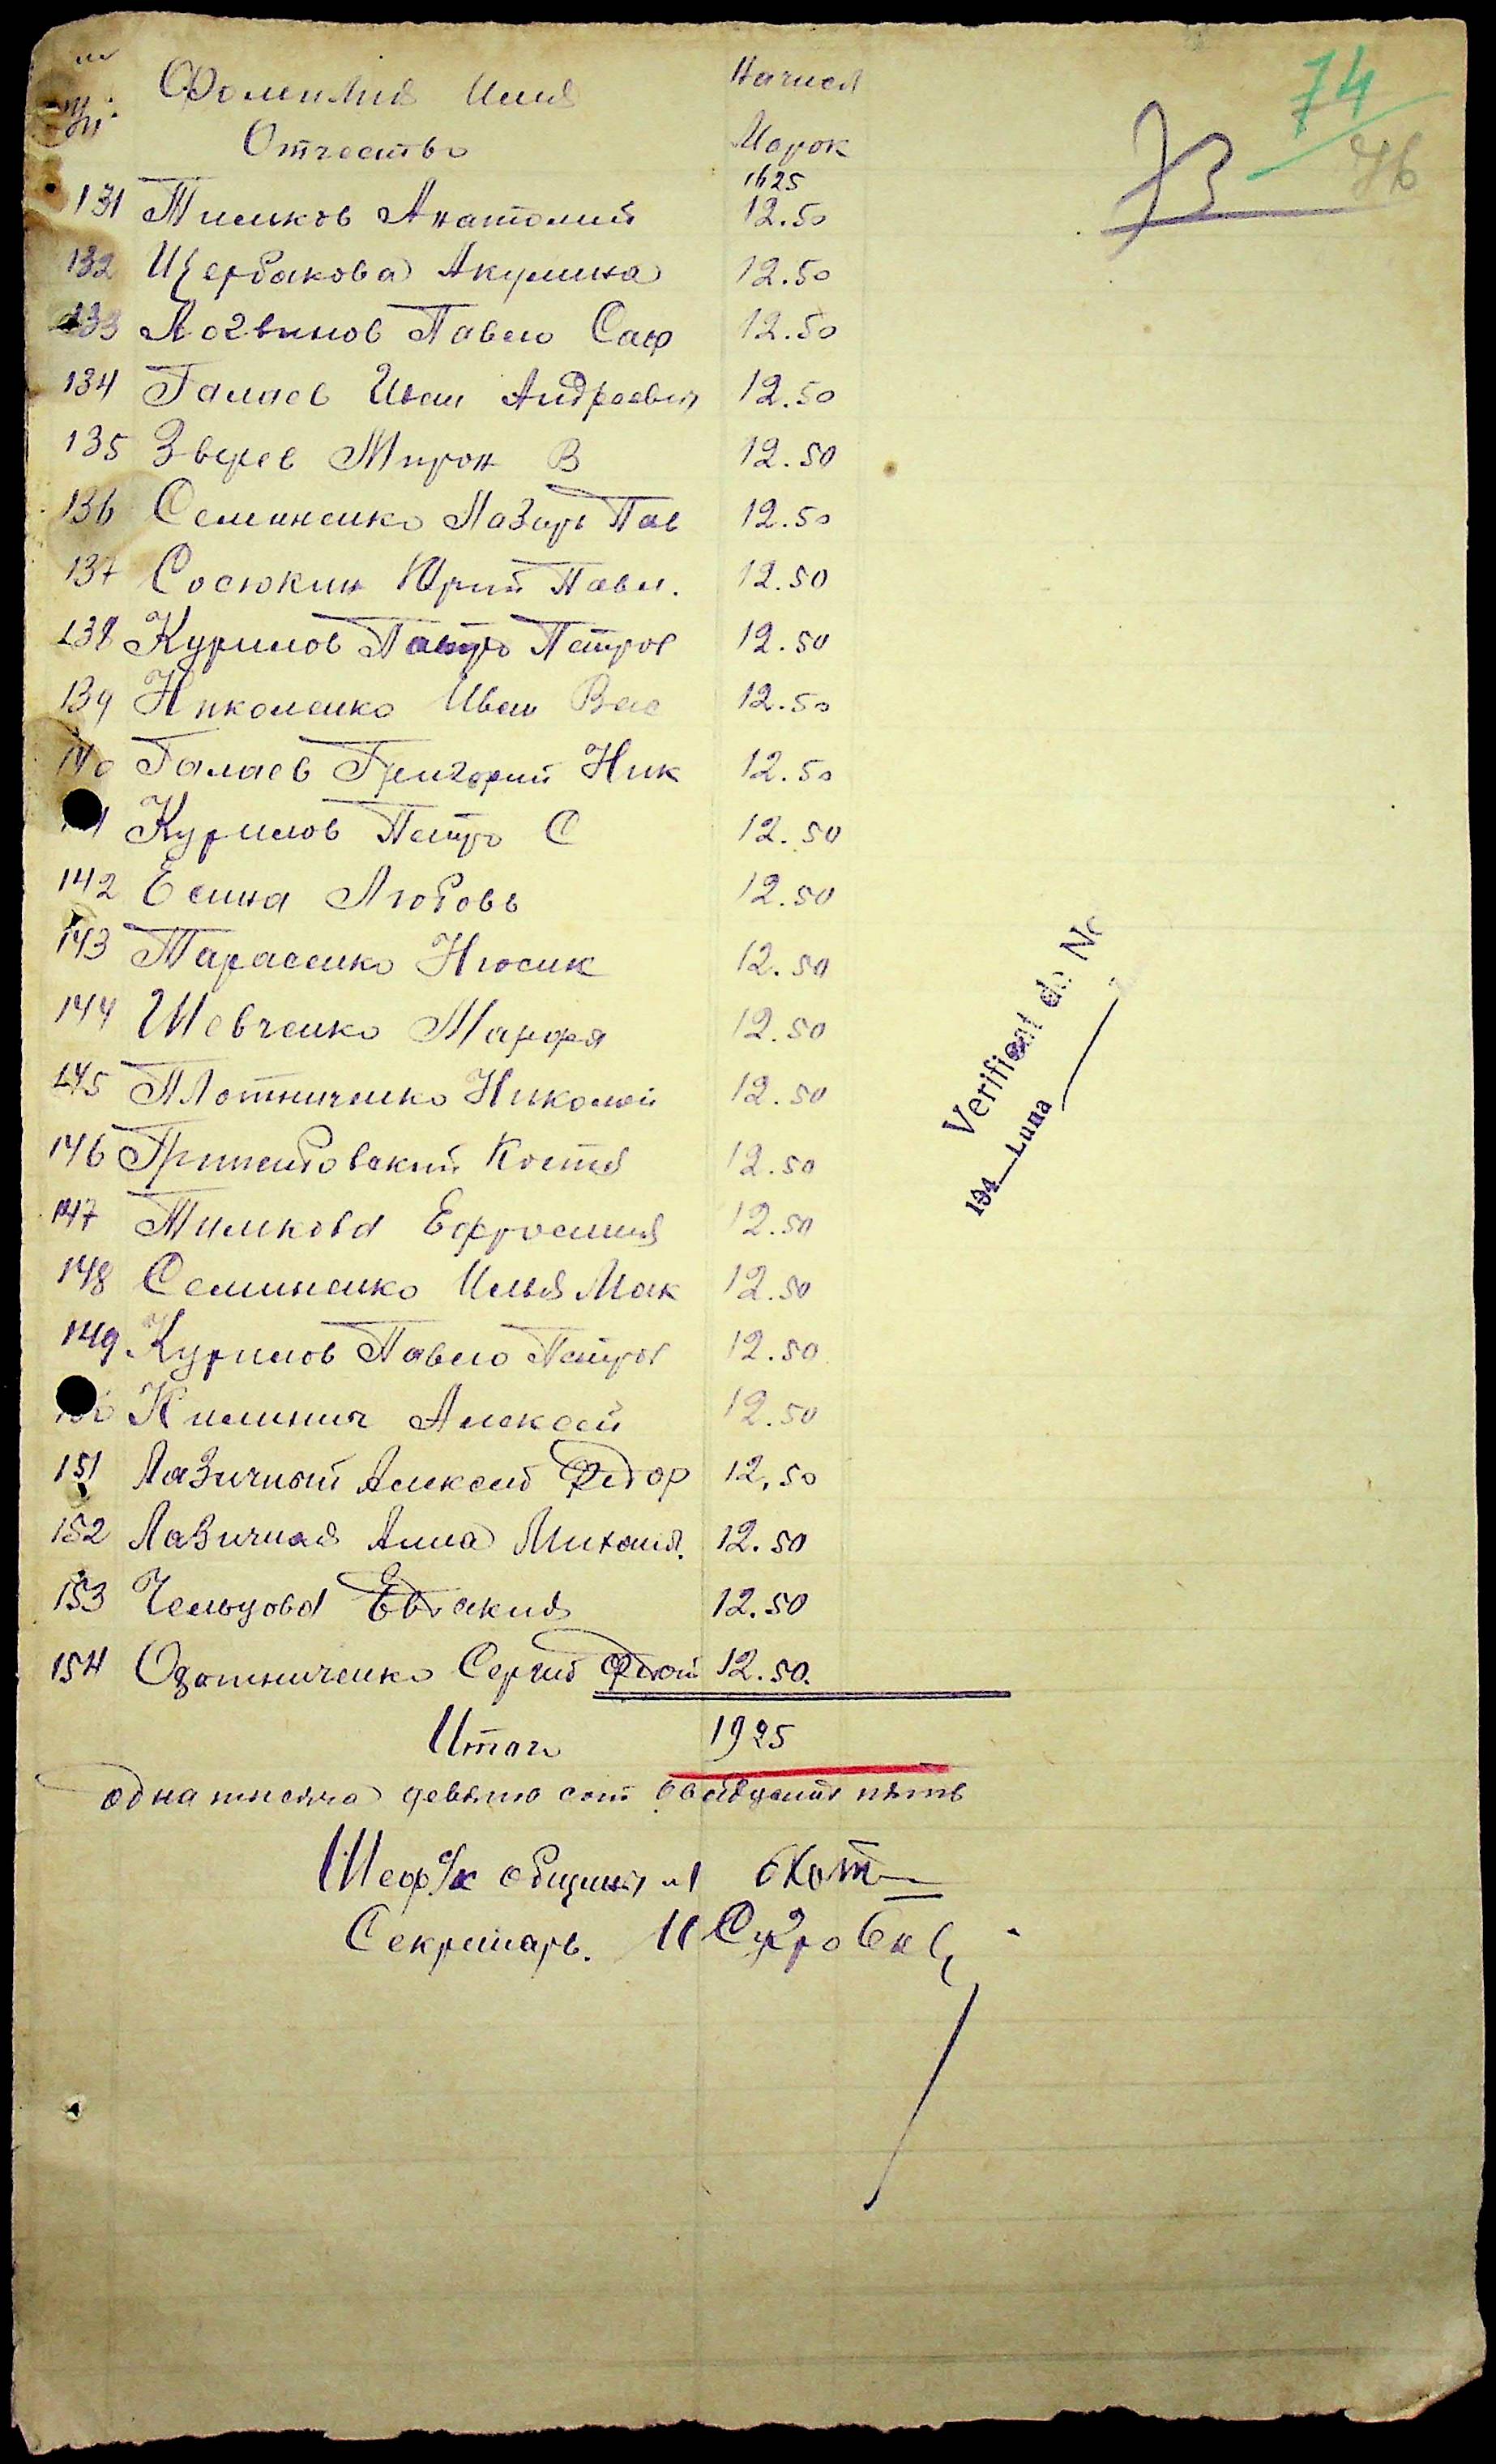 74
73
76
Фамилия Имя Начисл
Отчество Марок
1625
131 Тимков Анатолий 12.50
132 Щербакова Акулина 12.50
133 Логвинов Павло Саф 12.50
134 Галаев Иван Андреевич 12.50
135 Зверев Мирон В 12.50
136 Семиненко Лазарь Пав 12.50
137 Сосюкин Юрий Павл. 12.50
138 Курилов Петров 12.50
139 Николенко Иван Вас 12.50
140 Галаев Григорий Ник 12.50
Курилов Петро С 12.50
142 Есина Любовь 12.50
143 Тарасенко Нюсик 12.50
144 Шевченко Марфа 12.50
145 Плотниченко Николай 12.50
146 Костя 12.50
147 Тимкова Ефросиния 12.50
148 Семиненко Илья Мак 12.50
149 Курилов Павло Петров 12.50
Килинич Алексей 12.50
151 Лазичный Алексей Федор 12,50
152 Лазичная Анна Михаил. 12.50
153 Чельцова Евдакия 12.50
154 Сергей 12.50.
Итого 1925
одна тисяча девято сот двадцать пять
Шеф с/х общины №1
Секретарь.
Verificat de No
194 Luna